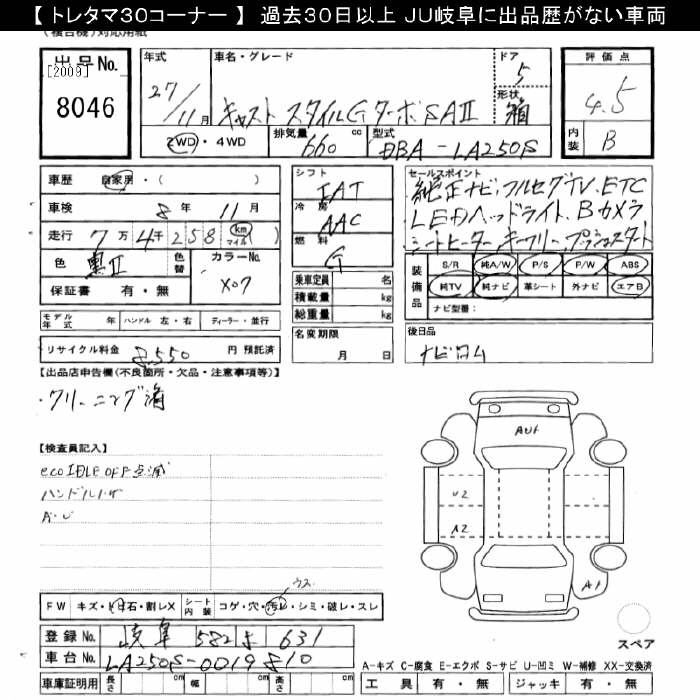 【 トレタマ30コーナー 】 過去30日以上 JU岐阜に出品歴がない車両
(複合機)対応用紙
出品No. 年式 車名・グレード ドア 評価点
[2009] 27/11月 キャスト スタイルGターボSAⅡ 5 4.5
8046 形状 箱
②WD・4WD 排気量 660 cc 型式 DBA-LA250S 内装 B
車歴 自家用・( ) シフト IAT セールスポイント 純正ナビ,フルセグTV,ETC
車検 8年 11月 冷房 AAC LEDヘッドライト,Bカメラ
走行 7万 4千 258 (km マイル) 燃料 G シートヒーター,キーフリー,プッシュスタート
色 黒Ⅱ 色替 カラーNo. X07 装備品 S/R 純A/W P/S P/W ABS
保証書 有・無 乗車定員 名 純TV 純ナビ 革シート 外ナビ エアB
積載量 kg ナビ型番:
モデル年式 年 ハンドル 左・右 ディーラー・並行 総重量 kg
リサイクル料金 8,550 円 預託済 名変期限 月 日 後日品 ナビロム
【出品店申告欄(不良箇所・欠品・注意事項等)】
・クリーニング済
AU1
【検査員記入】
eco IDLE OFF点滅
U2
A・U
A2
A1
ウス
FW キズ・トビ石・割レX シート内装 コゲ・穴・汚レ・シミ・破レ・スレ
登録No. 岐阜 582 ま 631
スペア
車台No. LA250S-0019810
A-キズ C-腐食 E-エクボ S-サビ U-凹ミ W-補修 XX-交換済
車庫証明用 長さ cm 幅 cm 高さ cm 工具 有・無 ジャッキ 有・無